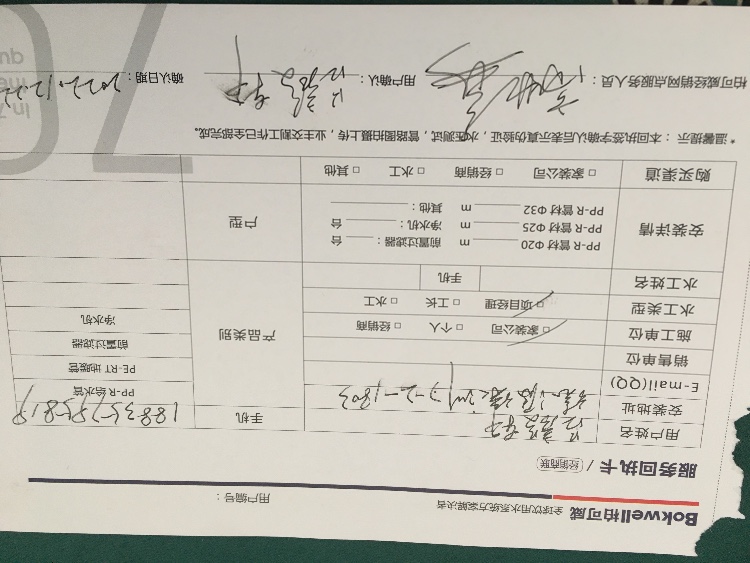 Bokwell柏可威 全球饮用水系统方案解决者
用户编号：
服务回执卡 / 经销商联
用户姓名
手机 18835785819
安装地址
E-mail(QQ)
销售单位
施工单位 □ 家装公司 □ 个人 □ 经销商
水工类型 □ 项目经理 □ 工长 □ 水工
水工姓名 手机
产品类别
PP-R给水管
PE-RT 地暖管
前置过滤器
净水机
安装详情
PP-R 管材 Φ20 m 前置过滤器： 台
PP-R 管材 Φ25 m 净水机： 台
PP-R 管材 Φ32 m 其他：
户型
购买渠道 □ 家装公司 □ 经销商 □ 水工 □ 其他
*温馨提示：本回执签字确认后表示真伪验证，水压测试，管路图拍摄上传，业主交割工作已全部完成。
柏可威经销网点服务人员： 用户确认： 确认日期：2022.12.22